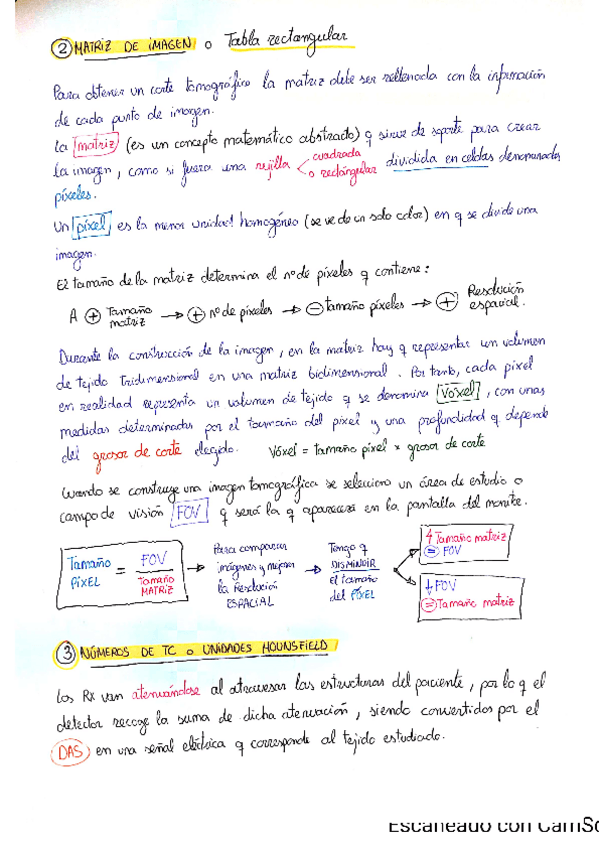 ② MATRIZ DE IMAGEN o Tabla rectangular
Para obtener un corte tomográfico la matriz debe ser rellenada con la información
de cada punto de imagen.
La matriz (es un concepto matemático abstracto) q sirve de soporte para crear
la imagen, como si fuera una rejilla cuadrada
o rectángular dividida en celdas denominadas
píxeles.
Un píxel es la menor unidad homogénea (se ve de un solo color) en q se divide una
imagen.
El tamaño de la matriz determina el nº de píxeles q contiene:
A ⊕ Tamaño matriz → ⊕ nº de píxeles → ⊖ tamaño píxeles → ⊕ Resolución espacial.
Durante la construcción de la imagen, en la matriz hay q representar un volumen
de tejido tridimensional en una matriz bidimensional. Por tanto, cada píxel
en realidad representa un volumen de tejido q se denomina Vóxel, con unas
medidas determinadas por el tamaño del píxel y una profundidad q depende
del grosor de corte elegido. Vóxel = tamaño píxel × grosor de corte
Cuando se construye una imagen tomográfica se selecciona un área de estudio o
campo de visión FOV q será la q aparecerá en la pantalla del monitor.
Tamaño PíXEL = FOV / Tamaño MATRIZ
→ Para comparar imágenes y mejorar la Resolución ESPACIAL
→ Tengo q DISMINUIR el tamaño del PÍXEL
↑ Tamaño matriz
= FOV
↓ FOV
= Tamaño matriz
③ NÚMEROS DE TC o UNIDADES HOUNSFIELD
Los Rx van atenuándose al atravesar las estructuras del paciente, por lo q el
detector recoge la suma de dicha atenuación, siendo convertidos por el
DAS en una señal eléctrica q corresponde al tejido estudiado.
Escaneado con CamSc